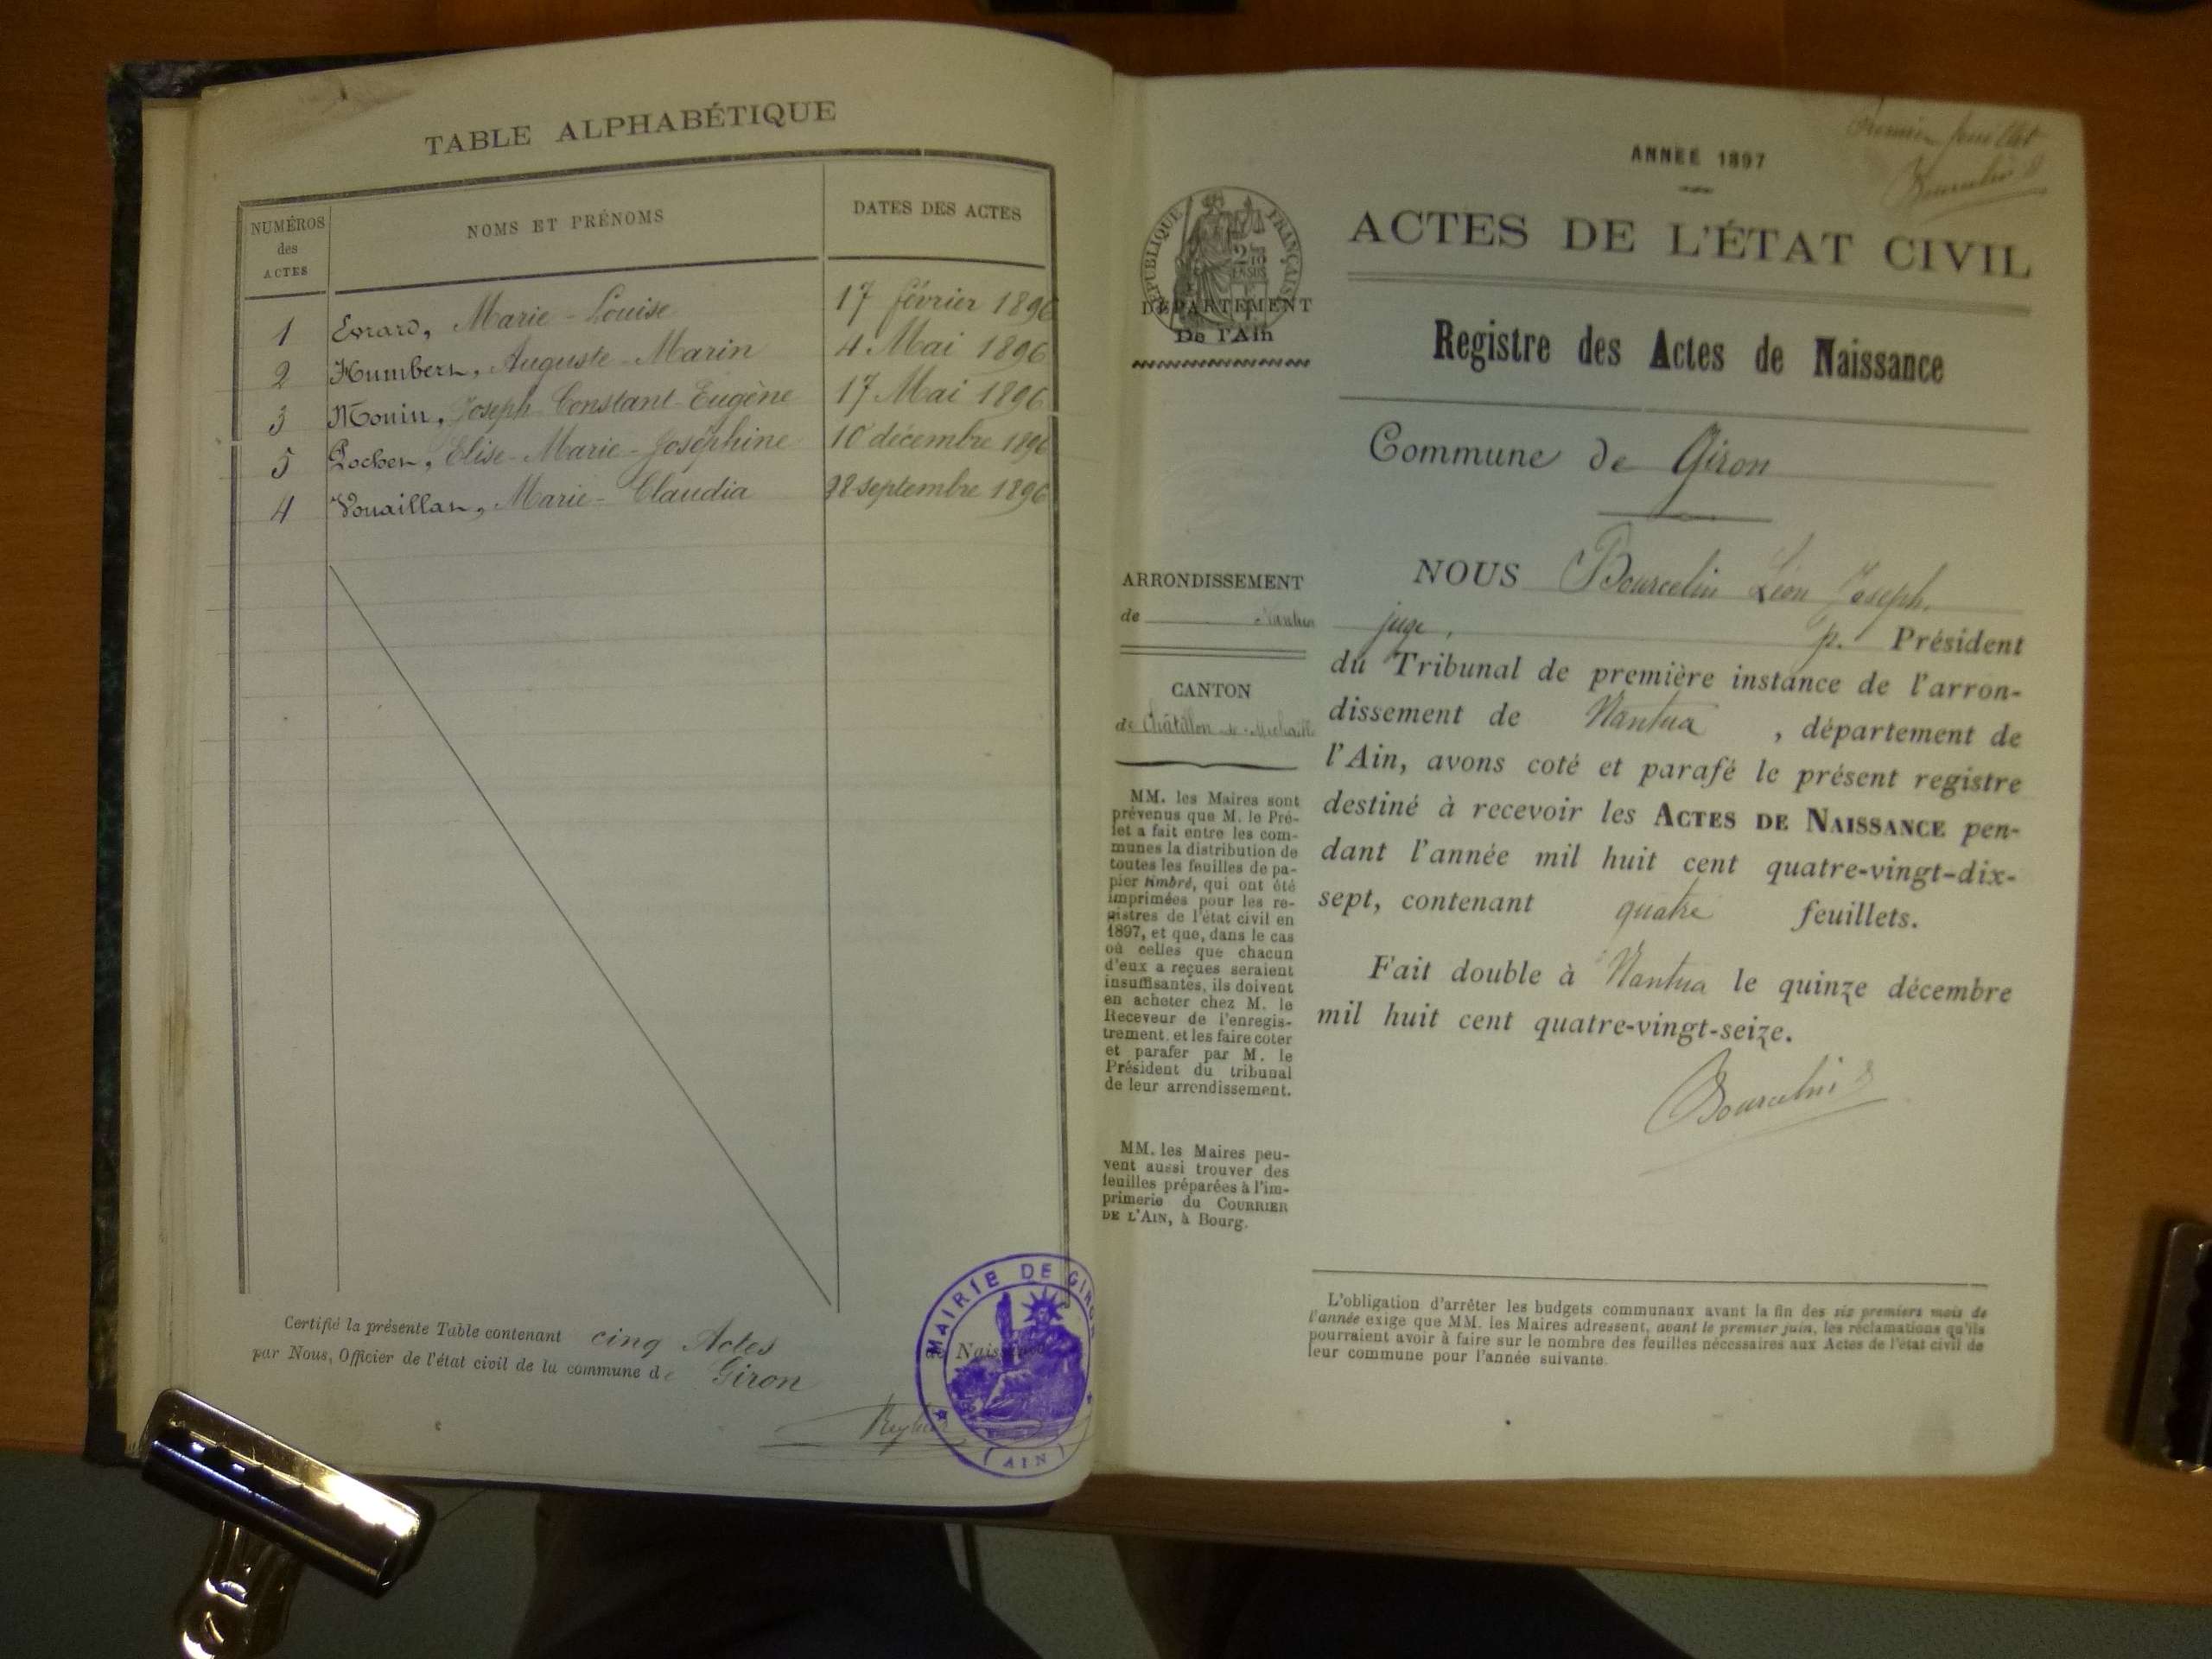 TABLE ALPHABÉTIQUE
NUMÉROS des ACTES
NOMS ET PRÉNOMS
DATES DES ACTES
1 Evrard, Marie-Louise 17 février 1896
2 Humbert, Auguste-Marin 4 Mai 1896
3 Monin, Joseph-Constant-Eugène 17 Mai 1896
5 Pochet, Elise-Marie-Joséphine 10 décembre 1896
4 Vouaillat, Marie-Claudia 28 septembre 1896
Certifié la présente Table contenant cinq Actes de Naissance
par Nous, Officier de l'état civil de la commune de Giron
MAIRIE DE GIRON
(AIN)
Premier feuillet
Bourcelin
ANNÉE 1897
RÉPUBLIQUE FRANÇAISE
DÉPARTEMENT
De l'Ain
ACTES DE L'ÉTAT CIVIL
Registre des Actes de Naissance
Commune de Giron
ARRONDISSEMENT
de Nantua
CANTON
de Châtillon-de-Michaille
MM. les Maires sont
prévenus que M. le Pré-
fet a fait entre les com-
munes la distribution de
toutes les feuilles de pa-
pier timbré, qui ont été
imprimées pour les re-
gistres de l'état civil en
1897, et que, dans le cas
où celles que chacun
d'eux a reçues seraient
insuffisantes, ils doivent
en acheter chez M. le
Receveur de l'enregis-
trement, et les faire coter
et parafer par M. le
Président du tribunal
de leur arrondissement.
MM. les Maires peu-
vent aussi trouver des
feuilles préparées à l'im-
primerie du COURRIER
DE L'AIN, à Bourg.
NOUS Bourcelin Léon Joseph,
juge, p. Président
du Tribunal de première instance de l'arron-
dissement de Nantua, département de
l'Ain, avons coté et parafé le présent registre
destiné à recevoir les ACTES DE NAISSANCE pen-
dant l'année mil huit cent quatre-vingt-dix-
sept, contenant quatre feuillets.
Fait double à Nantua le quinze décembre
mil huit cent quatre-vingt-seize.
Bourcelin
L'obligation d'arrêter les budgets communaux avant la fin des six premiers mois de
l'année exige que MM. les Maires adressent, avant le premier juin, les réclamations qu'ils
pourraient avoir à faire sur le nombre des feuilles nécessaires aux Actes de l'état civil de
leur commune pour l'année suivante.